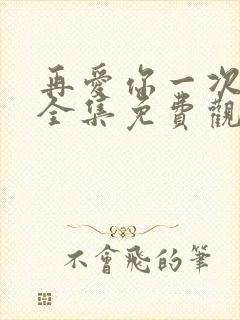 再愛你一次
全集免費觀
不會飛的筆